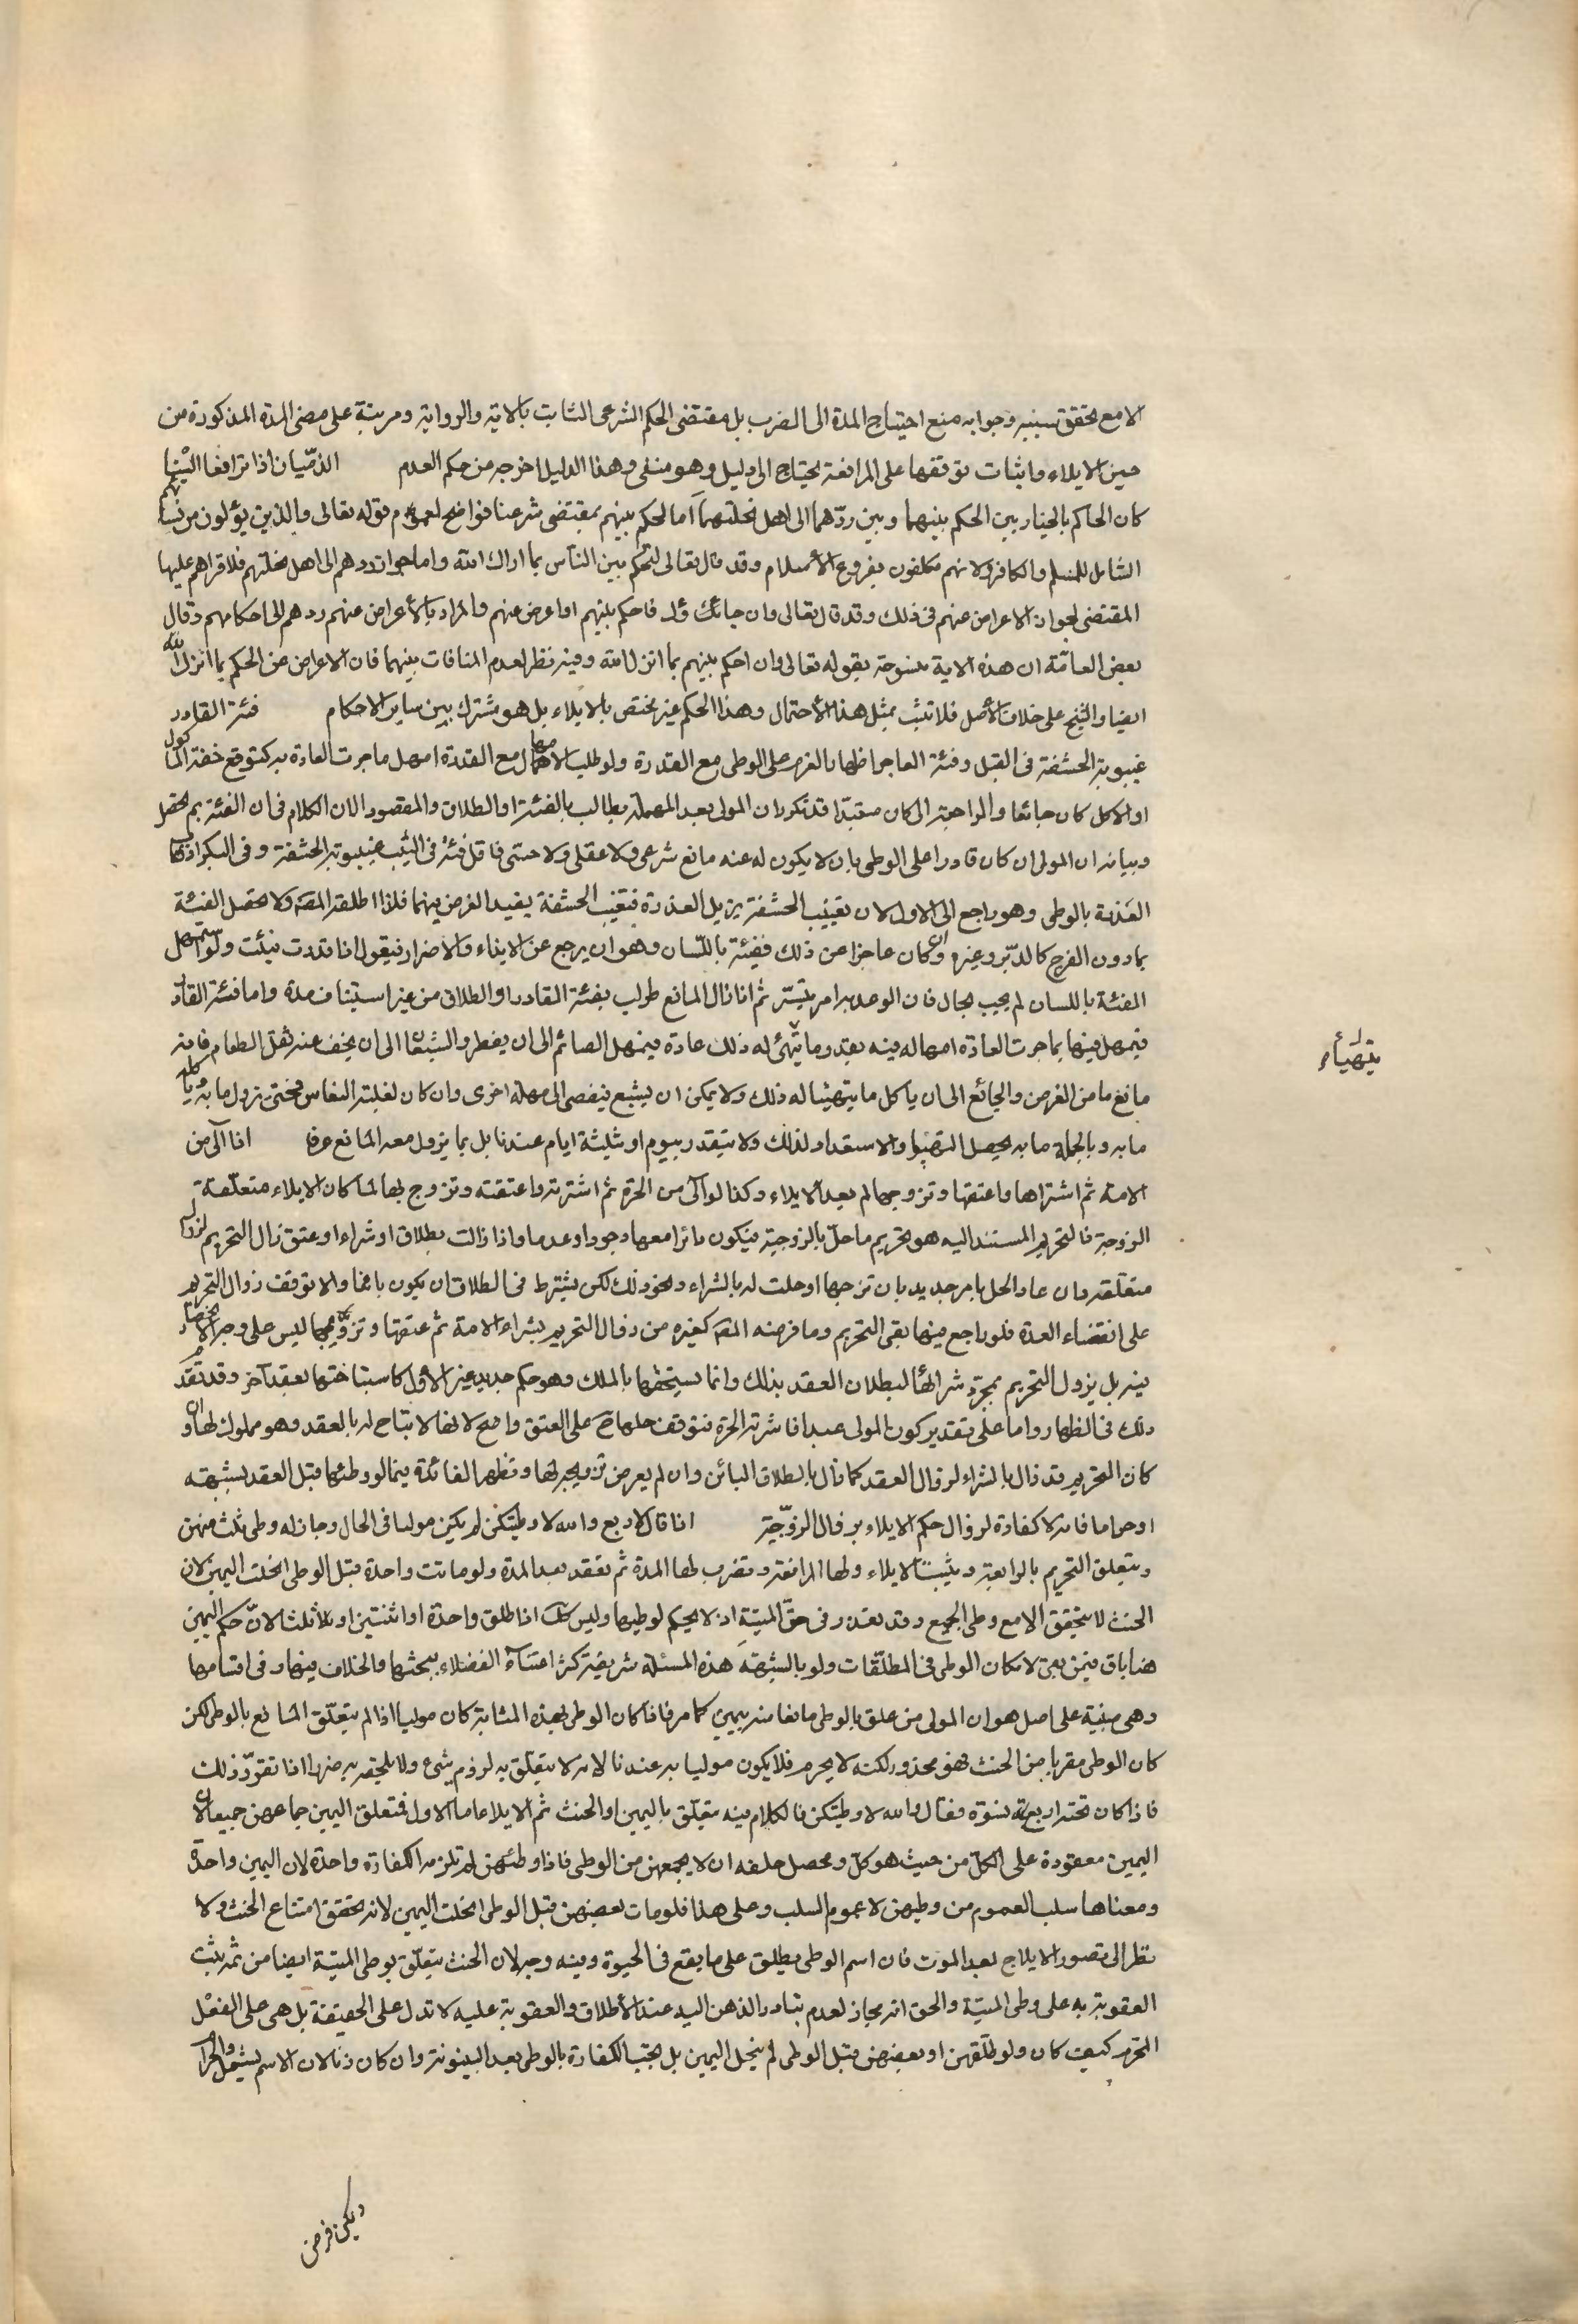 الا مع تحقق سببه وجوابه منع احتياج المدة الى الضرب بل مقتضى الحكم الشرعى الثابت بالاية والرواية ومرتبة على مضى المدة المذكورة من
حين الايلاء واثبات توقفها على المرافعة يحتاج الى دليل وهو منفى وهذا الدليل اخرجه من حكم العدم الذمّيان اذا ترافعا الينا
كان الحاكم بالخيار بين الحكم بينهما وبين ردّهما الى اهل نحلتهما اما الحكم بينهم بمقتضى شرعنا فواضح لعموم قوله تعالى والذين يؤلون من نسائهم
الشامل للمسلم والكافر ولانهم مكلفون بفروع الاسلام وقد قال تعالى لتحكم بين الناس بما اراك الله واما جواز ردهم الى اهل نحلتهم فلاقراهم عليها
المقتضى لجواز الاعراض عنهم فى ذلك وقد قال تعالى وان جائك ؤك فاحكم بينهم او اعرض عنهم والمراد بالأعراض عنهم ردهم الى احكامهم وقال
بعض العامّة ان هذه الاية منسوخة بقوله تعالى وان احكم بينهم بما انزل الله وفيه نظر لعدم المنافات بينهما فان الاعراض عن الحكم بما انزل الله
ايضا والنسخ على خلاف الأصل فلا تثبت بمثل هذا الأحتمال وهذا الحكم غير مختص بالايلاء بل هو مشترك بين ساير الاحكام فئة القادر
غيبوبة الحشفة فى القبل وفئة العاجز اظهار العزم على الوطى مع القدرة ولو طلب الامهال مع القدرة امهل ما جرت العادة به كتوقع خفة المأكول
او الاكل كان جائعا والراحة ان كان متعبا قد تكرر ان المولى بعد المهملة يطالب بالفئة او الطلاق والمقصود الان الكلام فى ان الفئة بم تحصل
وبيانه ان المولى ان كان قادرا على الوطى بان لا يكون له عنه مانع شرعى ولا عقلى ولا حسى فاقل فئته فى الثيب غيبوبة الحشفة وفى البكر اذهاب
العَذرة بالوطى وهو راجع الى الاول لان تغييب الحشفة يزيل العذرة فتغيب الحشفة يفيد الغرض فيهما فلذا اطلقه المصَ ولا تحصل الفئة
بما دون الفرج كالدبر وغيره وان كان عاجزا عن ذلك ففيئة باللسان وهو ان يرجع عن الايذاء والاضرار فيقول اذا قدرت فيئت ولو استمهل
الفئة باللسان لم يجب بحال فان الوعد به امر متيسّر ثم اذا زال المانع طولب بفئة القادر او الطلاق من غير استيناف مدة واما فئة القادر
فيمهل فيها بما جرت العادة امهاله فيه بقدر ما يتهئ له ذلك عادة فيمهل الصائم الى ان يفطر والشبعان الى ان يخف عنه ثقل الطعام فانه
مانع ما من الغرض والجائع الى ان ياكل ما يتهيئا له ذلك ولا يمكن ان يشبع فيفضى الى مهلة اخرى وان كان لغلبة النعاس فحتى يزول ما به
ما به وبالجملة ما به يحصل التهيّؤ والاستعداد لذلك ولا يتقدر بيوم او ثلثة ايام عندنا بل بما يزول معه المانع عرفا اذا آلى من
الامة ثم اشتراها واعتقها وتزوجها لم يعد الايلاء وكذا لو آلى من الحرة ثم اشترته واعتقته وتزوج بها لما كان الايلاء متعلقه
الزوجة فالتحريم المستند اليه هو تحريم ما حلّ بالزوجية فيكون دائرا معها وجودا وعدما واذا زالت بطلاق او شراء او عتق زال التحريم لزوال
متعلقه وان عاد الحل بامر جديد بان تزوجها او حلت له بالشراء ونحو ذلك لكن يشترط فى الطلاق ان يكون بائنا والا توقف زوال التحريم
على انقضاء العدة فلو راجع فيها بقى التحريم وما فرضه المصَ كغيره من زوال التحريم بشراء الامة ثم عتقها وتزويجها ليس على وجه الانحصار
فيه بل يزول التحريم بمجرّد شرائها لبطلان العقد بذلك وانما يستبيحها بالملك وهو حكم جديد غير الأول كاستباحتها بعقد آخر وقد تقدم
ذلك فى الظهار واما على تقدير كون المولى عبدا فاشترته الحرة فتوقف حلها حَ على العتق واضح لانها لا تباح له بالعقد وهو مملوك لها وان
كان التحريم قد زال بالشراء لزوال العقد كما زال بالطلاق البائن وان لم يعرض تزويجه لها وتظهر الفائدة فيما لو وطئها قبل العقد بشبهة
او حراما فانه لا كفارة لزوال حكم الايلاء بزوال الزوجّية اذا قال لاربع والله لا وطيتكن لم يكن موليا فى الحال وجاز له وطى ثلث منهن
ويتعلق التحريم بالرابعة ويثبت الايلاء ولها المرافعة وتضرب لها المدة ثم تقعد بعد المدة ولو ماتت واحدة قبل الوطى انحلت اليمين لان
الحنث لا يتحقق الا مع وطى الجميع وقد تعذر فى حقّ الميتة اذ لا حكم لوطيها وليس كك اذا طلق واحدة او اثنتين او ثلاثا لانّ حكم اليمين
هنا باق فيمن بقى لامكان الوطى فى المطلّقات ولو بالشبهة هذه المسئلة شريفة كثر اعتناء الفضلاء ببحثها والخلاف فيها وفى اقسامها
وهى مبنية على اصل هو ان المولى من علق بالوطى مانعا منه بيمين كما مر فاذا كان الوطى بهذه المثابة كان موليا اذا لم يتعلّق المانع بالوطى لكن
كان الوطى مقربا من الحنث فهو محذور لكنه لا يحرم فلا يكون موليا به عندنا لانه لا يتعلق به لزوم شئ ولا يلحقه به ضرر اذا تقرّر ذلك
فاذا كان تحته اربعة نسوة فقال والله لا وطيتكن فالكلام فيه متعلق باليمين او الحنث ثم الايلاء اما الاول فتعلق اليمين جماعهن جميعا لان
اليمين معقودة على الكل من حيث هو كلّ ومحصل حلفه ان لا يجمعهن من الوطى فاذا وطئهن لم تلزمه الكفارة واحدة لان اليمين واحدة
ومعناها سلب العموم من وطيهن لا عموم السلب وعلى هذا فلو مات بعضهن قبل الوطى انحلت اليمين لانه تحقق امتناع الحنث ولا
نظر الى تصور الايلاج بعد الموت فان اسم الوطى يطلق على ما يقع فى الحيوة وفيه وجه لان الحنث يتعلّق بوطى الميتة ايضا من ثم يثبت
العقوبة به على وطى الميتة والحق انه مجاز لعدم تبادر الذهن اليه عند الأطلاق والعقوبة عليه لا تدل على الحقيقة بل هى على الفعل
المحرم كيف كان ولو طلّقهن او بعضهن قبل الوطى لم ينحل اليمين بل تجب الكفارة بالوطى بعد البينونة وان كان زنا لان الاسم يشمل الحرام
يتهيأء
ويمكن فرض